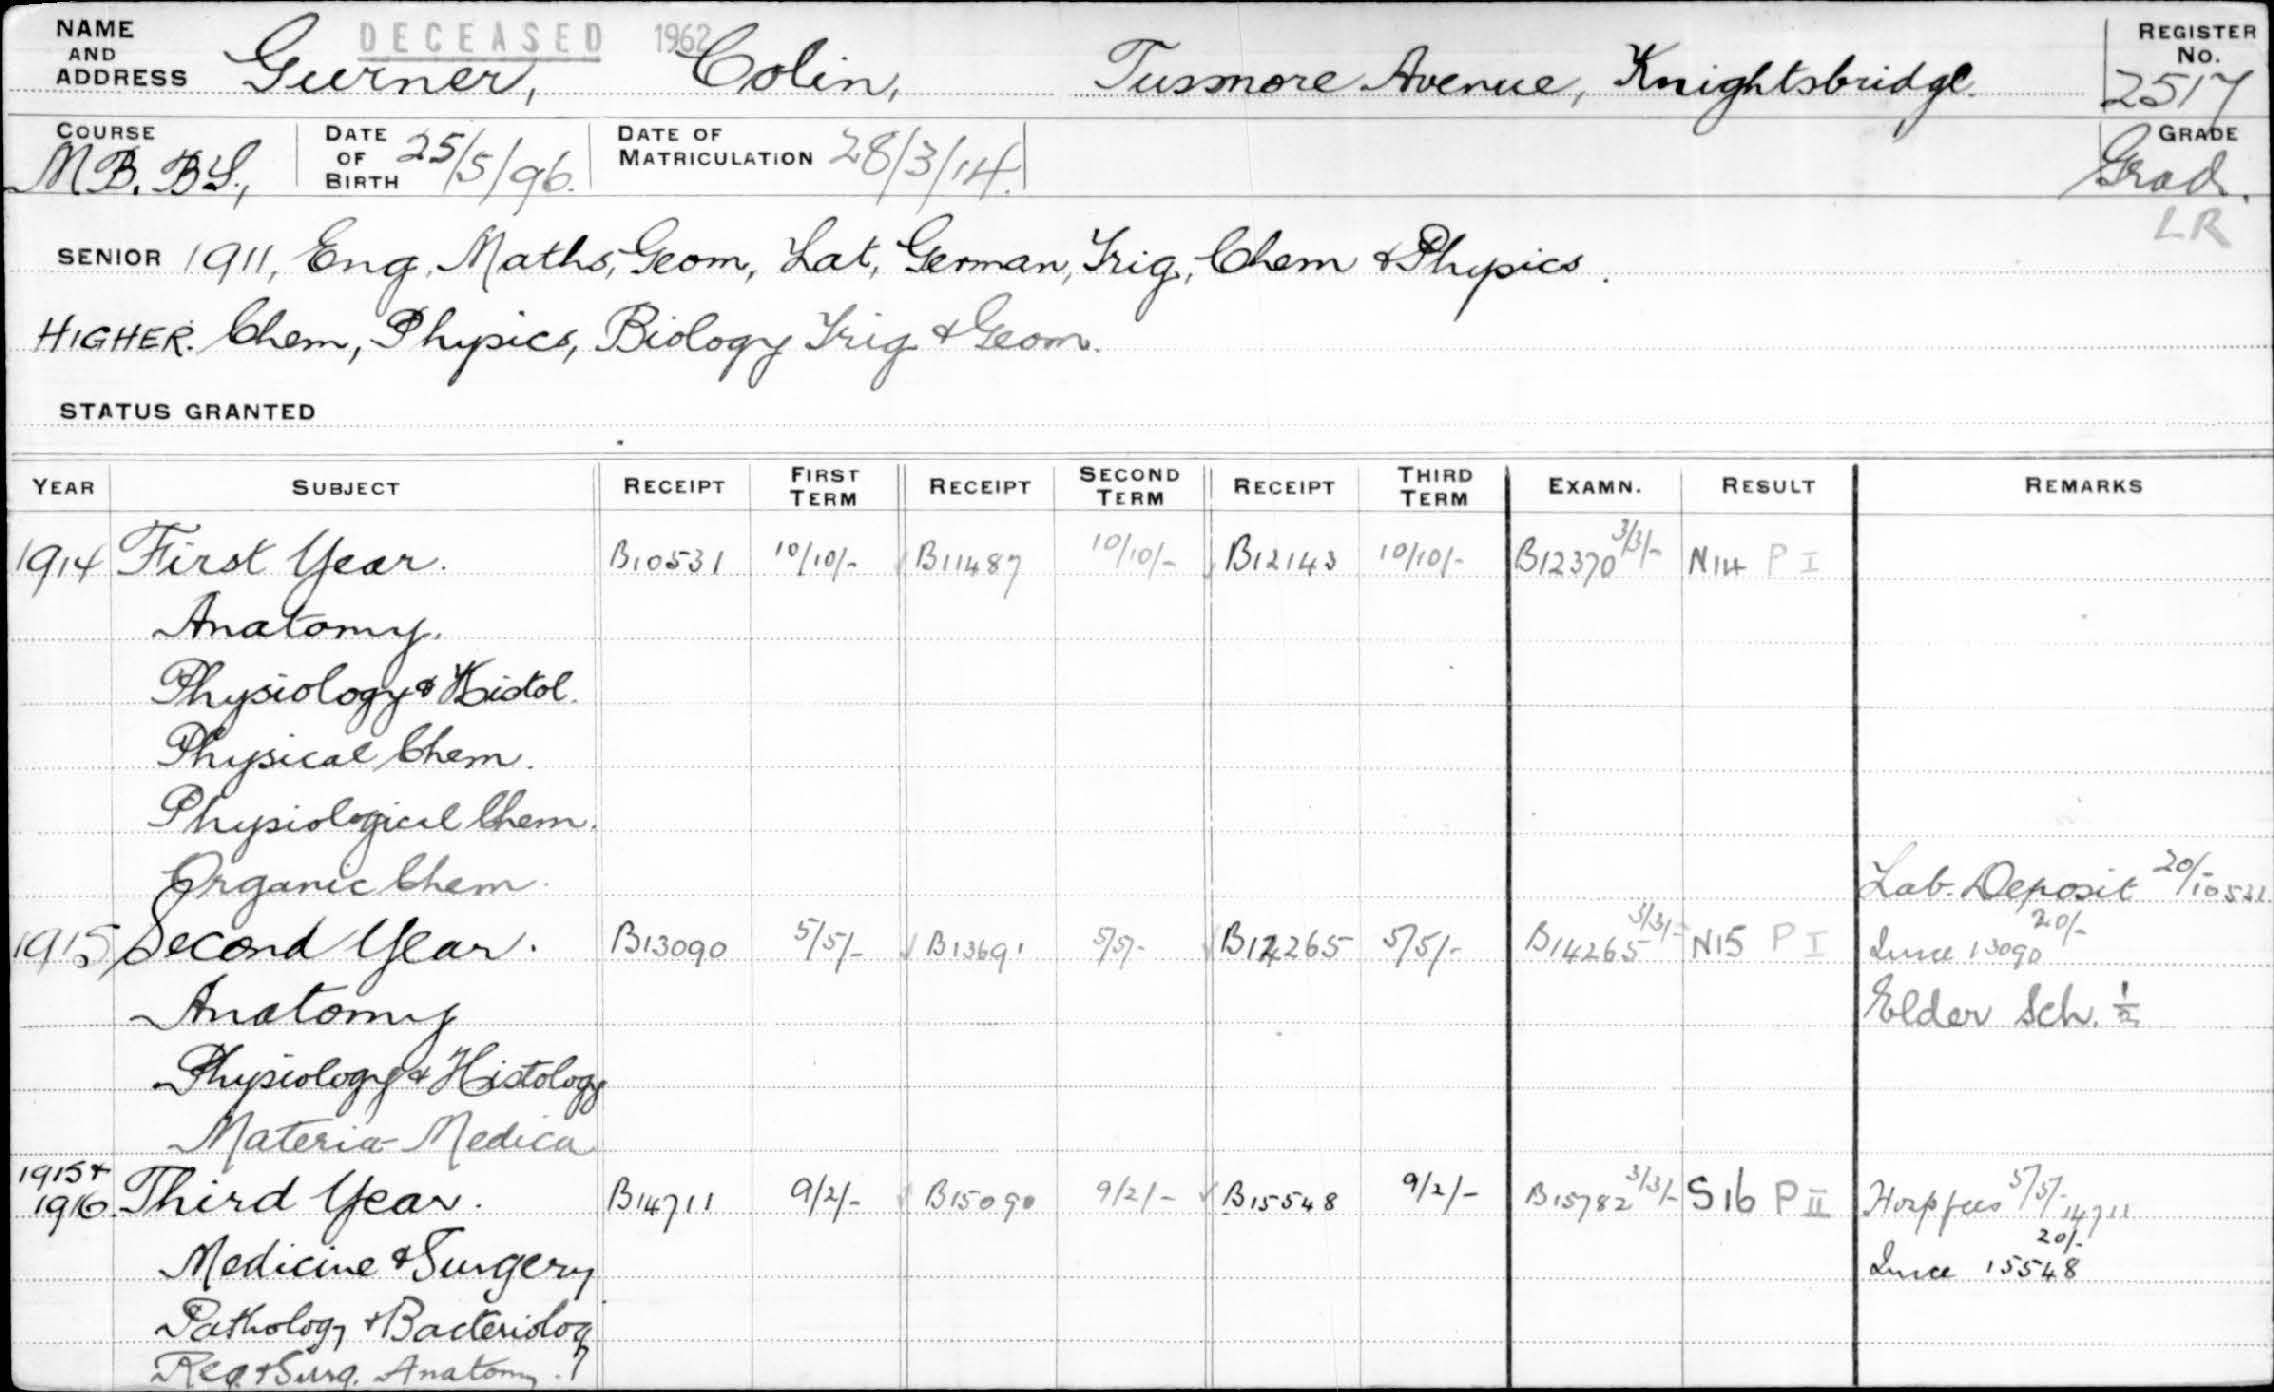 DECEASED 1962
NAME AND ADDRESS Gurner, Colin, Tusmore Avenue, Knightsbridge. REGISTER No. 2517
COURSE M.B. B.S., DATE OF BIRTH 25/5/96. DATE OF MATRICULATION 28/3/14. GRADE Grad.
LR
SENIOR 1911, Eng, Maths, Geom, Lat, German, Trig, Chem & Physics.
HIGHER. Chem, Physics, Biology Trig & Geom.
STATUS GRANTED
YEAR SUBJECT RECEIPT FIRST TERM RECEIPT SECOND TERM RECEIPT THIRD TERM EXAMN. RESULT REMARKS
1914 First Year. B10531 10/10/- B11487 10/10/- B12143 10/10/- B12370 3/3/- N14 P I
Anatomy.
Physiology & Histol.
Physical Chem.
Physiological Chem.
Organic Chem. Lab. Deposit 20/- 10531
1915 Second Year. B13090 5/5/- B13691 5/5/- B14265 5/5/- B14265 3/3/- N15 P I 13090 20/-
Anatomy Elder Sch. ½
Physiology & Histology
Materia Medica
1915 & 1916 Third Year. B14711 9/2/- B15090 9/2/- B15548 9/2/- B15782 3/3/- S16 P II Hosp fees 5/5/- 14711
Medicine & Surgery 15548 20/-
Pathology & Bacteriology
Reg. & Surg. Anatomy.